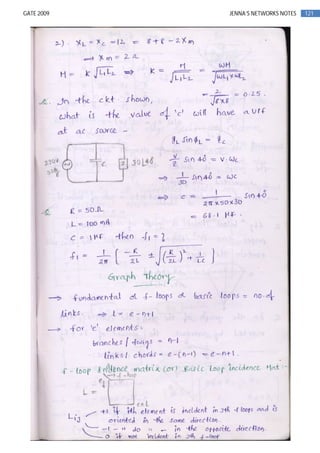 GATE 2009 JENNA'S NETWORKS NOTES 121
2.) . XL = Xc = 12 = 8 + 8 - 2 Xm
⟹ Xm = 2 Ω
M = K √L1L2 ⟹ K = M / √L1L2 = ωM / √ωL1 × ωL2
= 2 / √8×8 = 0.25 .
In the ckt shown,
what is the value of 'c' will have a UPf
at ac source -
IL Sin ϕL = Ic
V/Z Sin 40 = V. ωc
⟹ 1/30 Sin 40 = ωc
⟹ c = 1 / 2π × 50 × 30 . Sin 40
= 68.1 μF .
c 30∠40
R = 50 Ω
L = 100 mH
C = 1 μF then f1 = ?
f1 = 1/2π [ -R/2L ± √(R/2L)² + 1/LC ]
Graph theory
→ fundamental of f- loops of basic loops = no. of
links. ⟹ L = e-n+1
→ for 'e' elements.
branches / twigs = n-1
links / chords = e-(n-1) = e-n+1 .
f - loop Incidence matrix (or) Basic Loop incidence Mat :-
L =
Lij +1 if ith element is incident in jth f loops and is
oriented in the same direction.
-1 - " do " - in the opposite direction.
0 if not incident in jth f-loop.